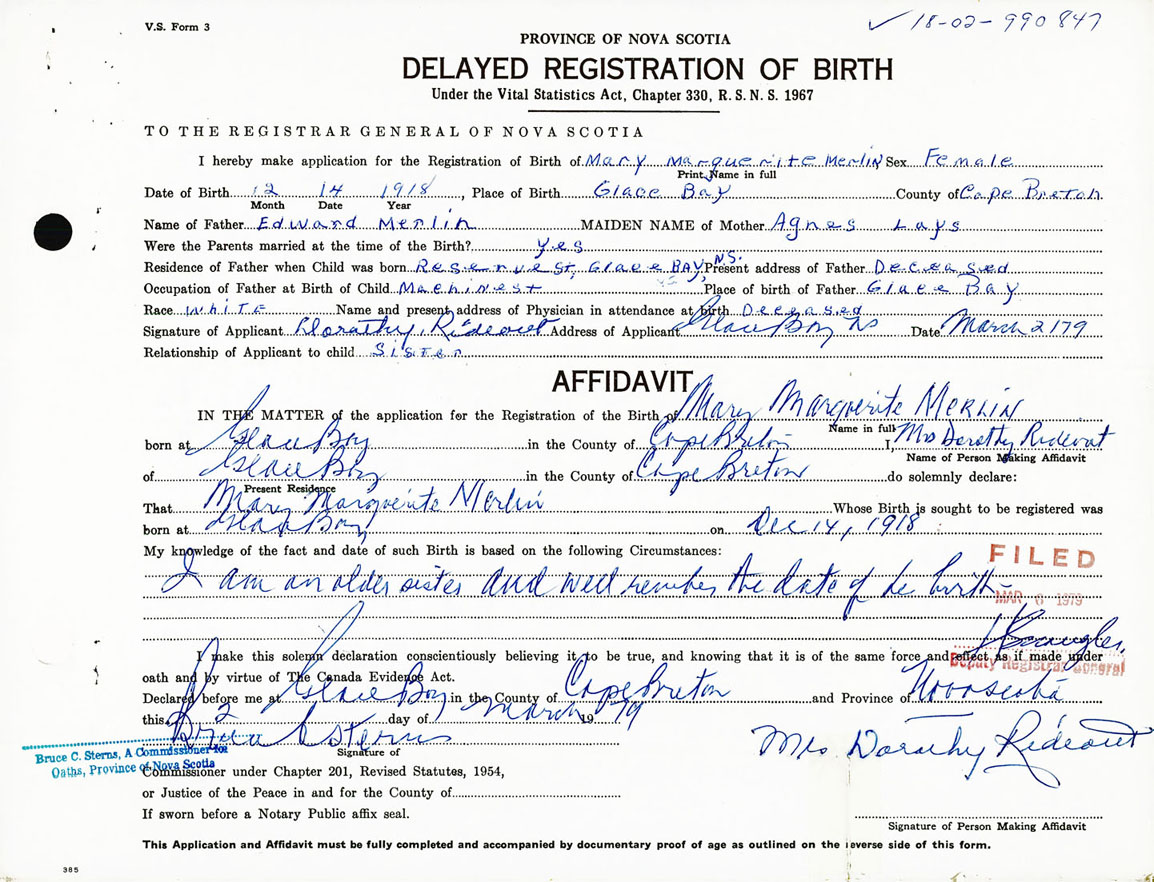 V.S. Form 3
✓ 18-02-990847
PROVINCE OF NOVA SCOTIA
DELAYED REGISTRATION OF BIRTH
Under the Vital Statistics Act, Chapter 330, R. S. N. S. 1967
TO THE REGISTRAR GENERAL OF NOVA SCOTIA
I hereby make application for the Registration of Birth of Mary Marguerite Merlin Sex Female
Print Name in full
Date of Birth 12 14 1918, Place of Birth Glace Bay County of Cape Breton.
Month Date Year
Name of Father Edward Merlin MAIDEN NAME of Mother Agnes Lays
Were the Parents married at the time of the Birth? Yes
Residence of Father when Child was born Reserve St, Glace BAY, N.S. Present address of Father Deceased
Occupation of Father at Birth of Child Machinest Place of birth of Father Glace Bay
Race White Name and present address of Physician in attendance at birth Deceased
Signature of Applicant Dorathy Rideout Address of Applicant Glace Bay NS Date March 2 179
Relationship of Applicant to child Sister
AFFIDAVIT
IN THE MATTER of the application for the Registration of the Birth of Mary Marguerite Merlin
Name in full
born at Glace Bay in the County of Cape Breton I, Mrs Dorothy Rideout
Name of Person Making Affidavit
of Glace Bay in the County of Cape Breton do solemnly declare:
Present Residence
That Mary Marguerite Merlin Whose Birth is sought to be registered was
born at Glace Bay on Dec 14, 1918
My knowledge of the fact and date of such Birth is based on the following Circumstances:
FILED
I am an older sister and well the date of birth
MAR 6 1979
I make this solemn declaration conscientiously believing it to be true, and knowing that it is of the same force and effect as if made under
Deputy Registrar General
oath and by virtue of The Canada Evidence Act.
Declared before me at Glace Bay in the County of Cape Breton and Province of Nova Scotia
this 2 day of March 19 79
Bruce C Sterns
Mrs Dorothy Rideout
Signature of
Bruce C. Sterns, A Commissioner for
Oaths, Province of Nova Scotia
Commissioner under Chapter 201, Revised Statutes, 1954,
or Justice of the Peace in and for the County of
If sworn before a Notary Public affix seal.
Signature of Person Making Affidavit
This Application and Affidavit must be fully completed and accompanied by documentary proof of age as outlined on the reverse side of this form.
385